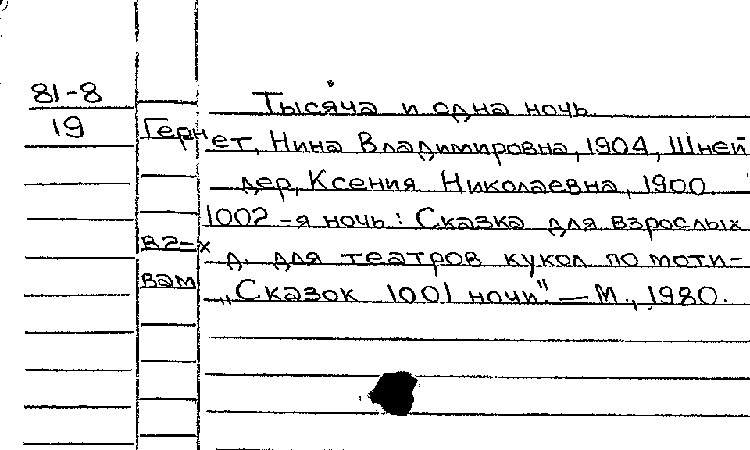 81-8 Тысяча и одна ночь.
19 Гернет, Нина Владимировна, 1904, Шней
дер, Ксения Николаевна, 1900.
1002-я ночь: Сказка для взрослых
в 2-х д. для театров кукол по моти-
вам „Сказок 1001 ночи". — М., 1980.